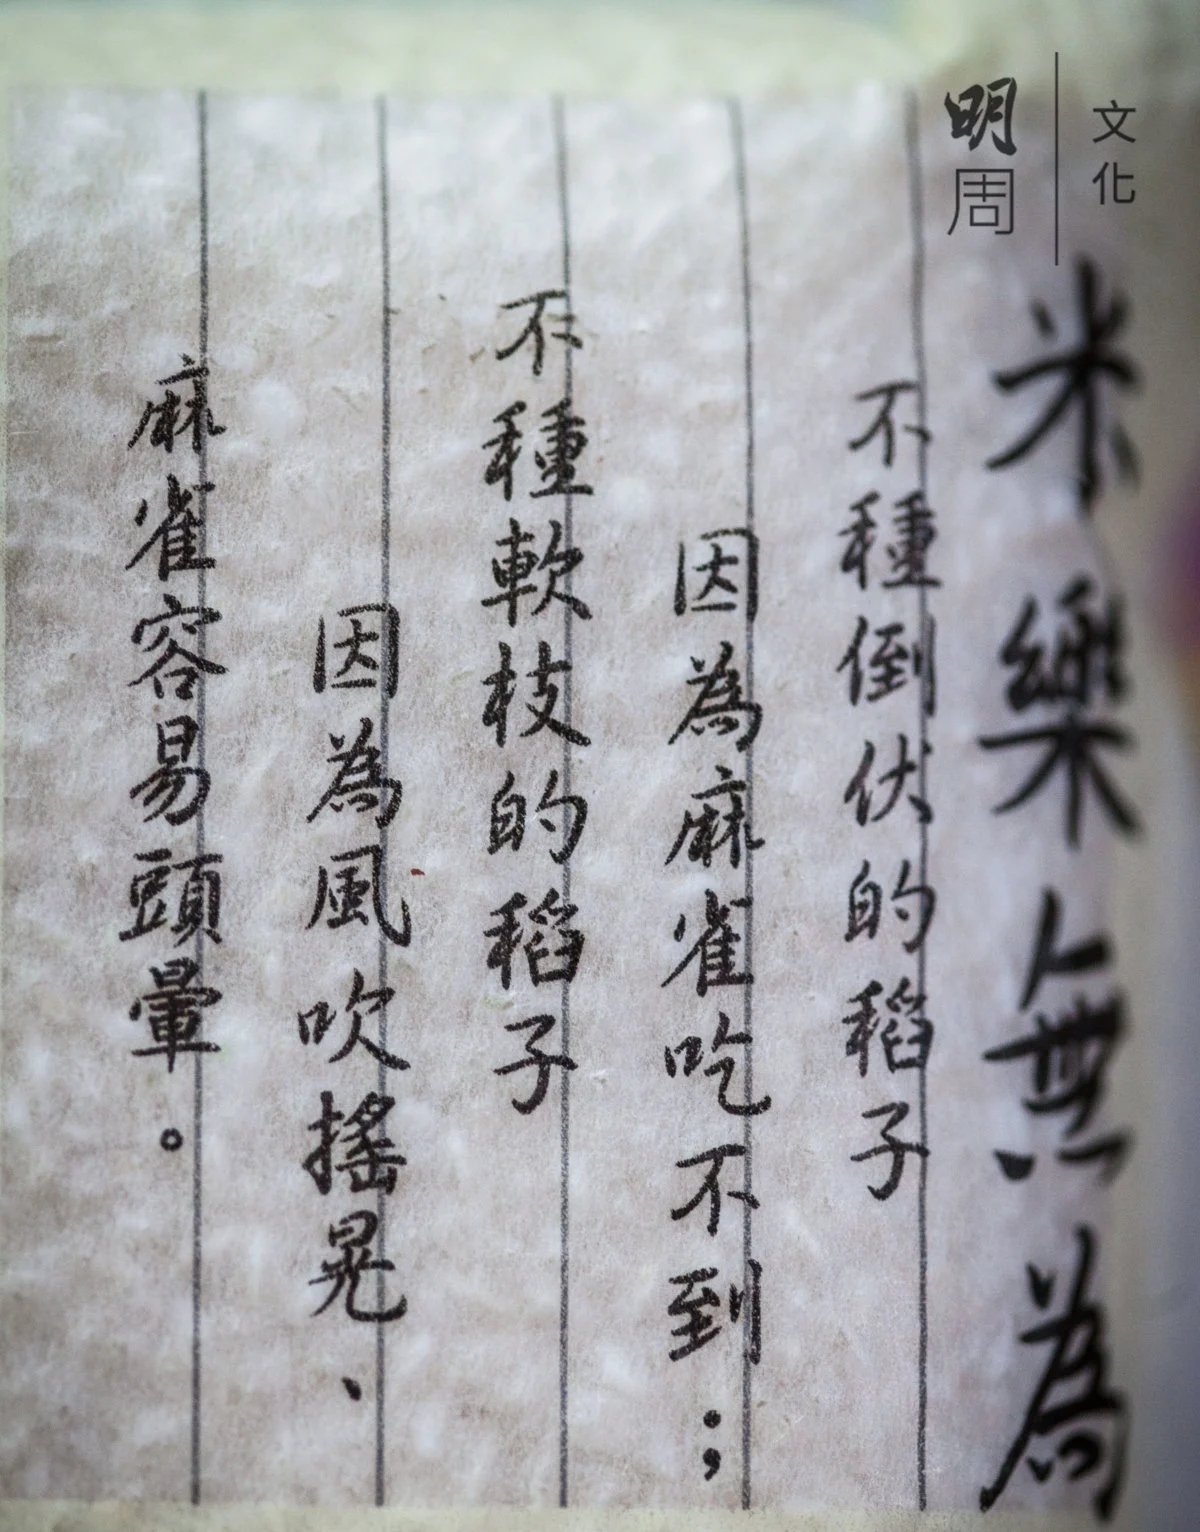 明周
文化
米樂無為
不種倒伏的稻子
因為麻雀吃不到；
不種軟枝的稻子
因為風吹搖晃、
麻雀容易頭暈。